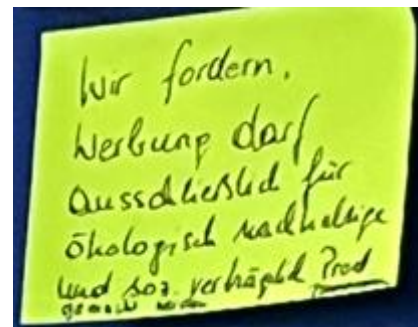 Wir fordern,
Werbung darf
ausschließlich für
ökologisch nachhaltige
und soz. verträglich Prod
gemacht werden